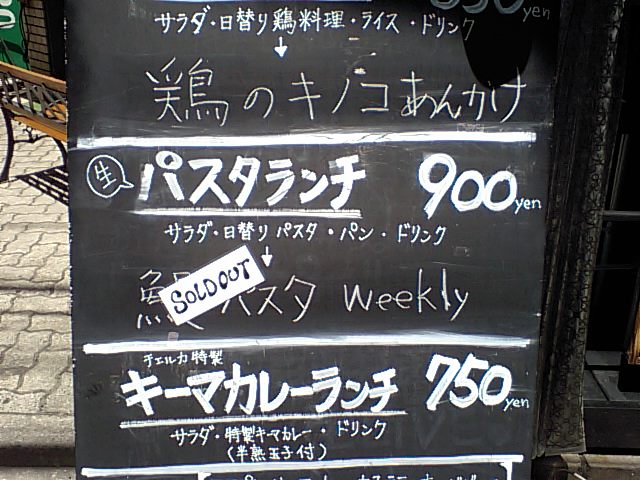 yen
サラダ・日替り鶏料理・ライス・ドリンク
↓
鶏のキノコあんかけ
生 パスタランチ 900yen
サラダ・日替りパスタ・パン・ドリンク
↓
SOLD OUT パスタ Weekly
チェルカ特製
キーマカレーランチ 750yen
サラダ・特製キーマカレー・ドリンク
(半熟玉子付)